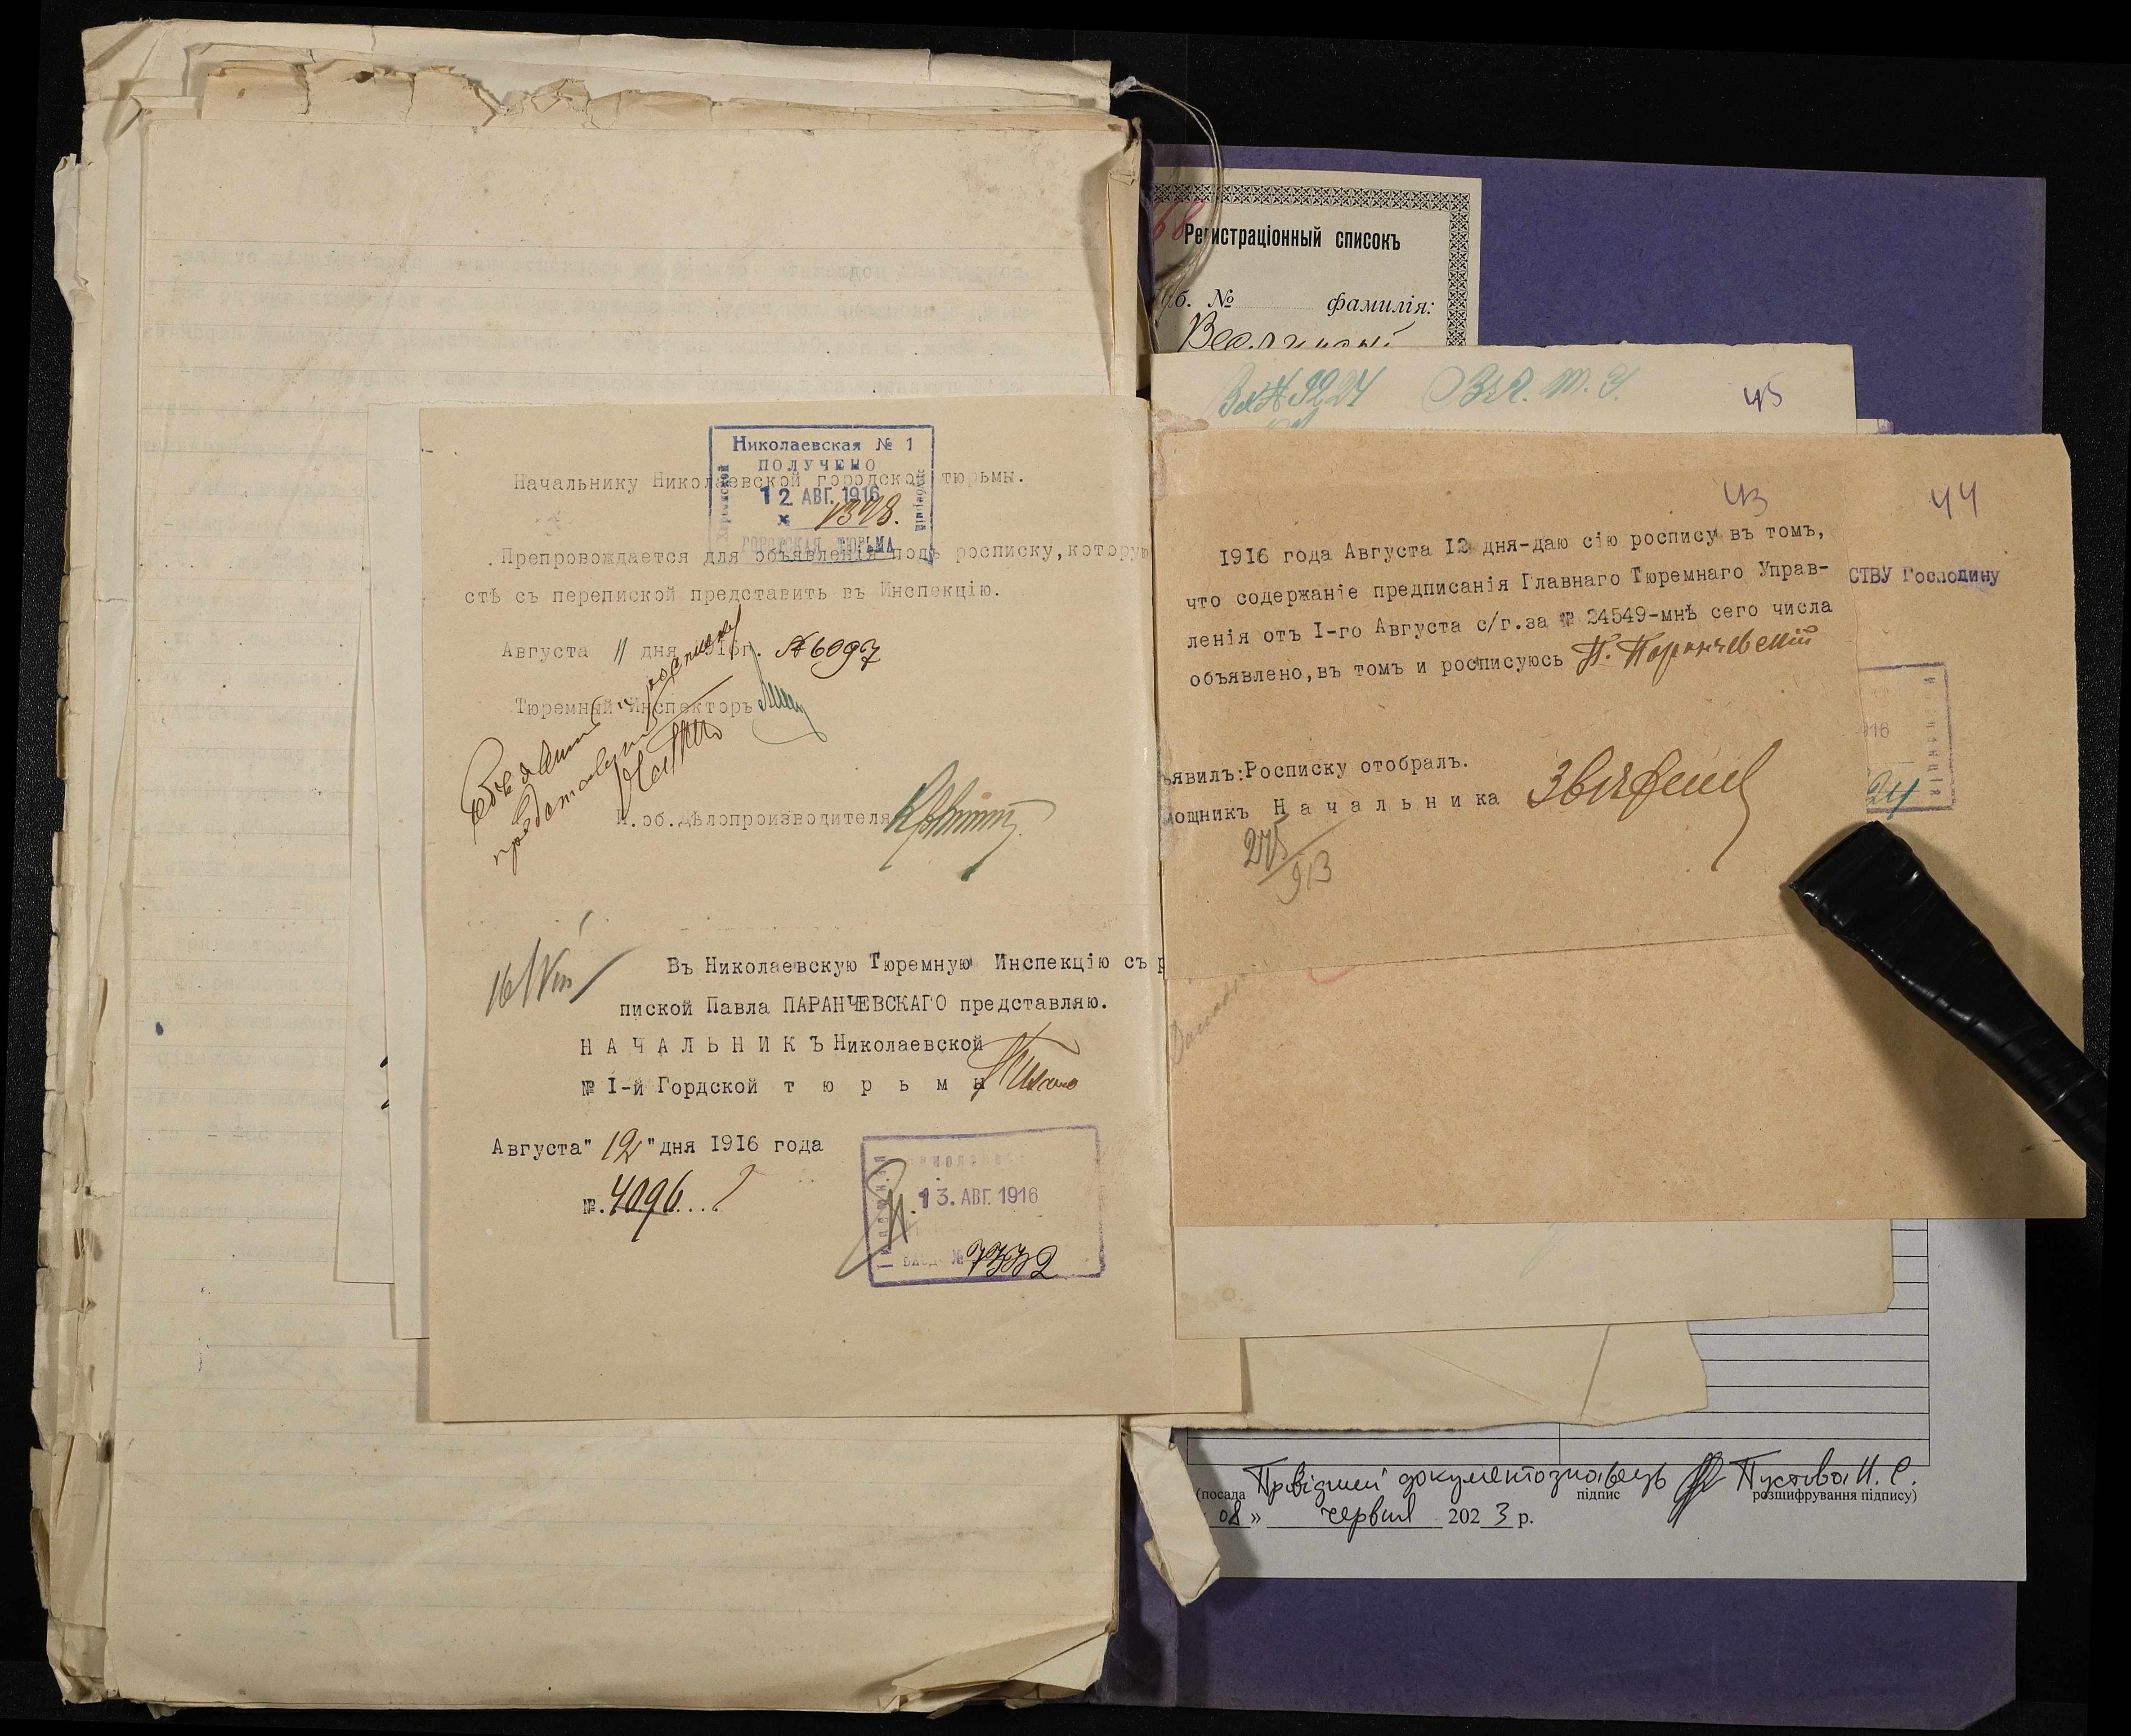 Николаевская № 1
ПОЛУЧЕНО
12 АВГ. 1916
Херсонской
губерніи
ГОРОДСКАЯ ТЮРЬМА
Начальнику Николаевской городской тюрьмы.
Препровождается для объявленія подъ росписку, которую
стѣ съ перепиской представить въ Инспекцію.
Августа 11 дня 1916г. № 6097
Тюремный Инспекторъ
И.об.Дѣлопроизводителя
16/VIII
Въ Николаевскую Тюремную Инспекцію съ р
пиской Павла ПАРАНЧЕВСКАГО представляю.
НАЧАЛЬНИКЪ Николаевской
№ I-й Гордской тюрьмы
Августа" 12 "дня 1916 года
№.4096...
13. АВГ. 1916
Вход. №
68
Регистраціонный списокъ
уб. № фамилія:
45
43
44
1916 года Августа 12 дня-даю сію роспису въ томъ,
что содержаніе предписанія Главнаго Тюремнаго Управ-
ленія отъ I-го Августа с/г.за № 24549-мнѣ сего числа
объявлено,въ томъ и росписуюсь П. Паранчевскій
СТВУ Господину
ъявилъ:Росписку отобралъ.
мощникъ Начальника
916
24
Провідний документознавець Пустова Н. С.
(посада підпис розшифрування підпису)
08 » червня 2023 р.